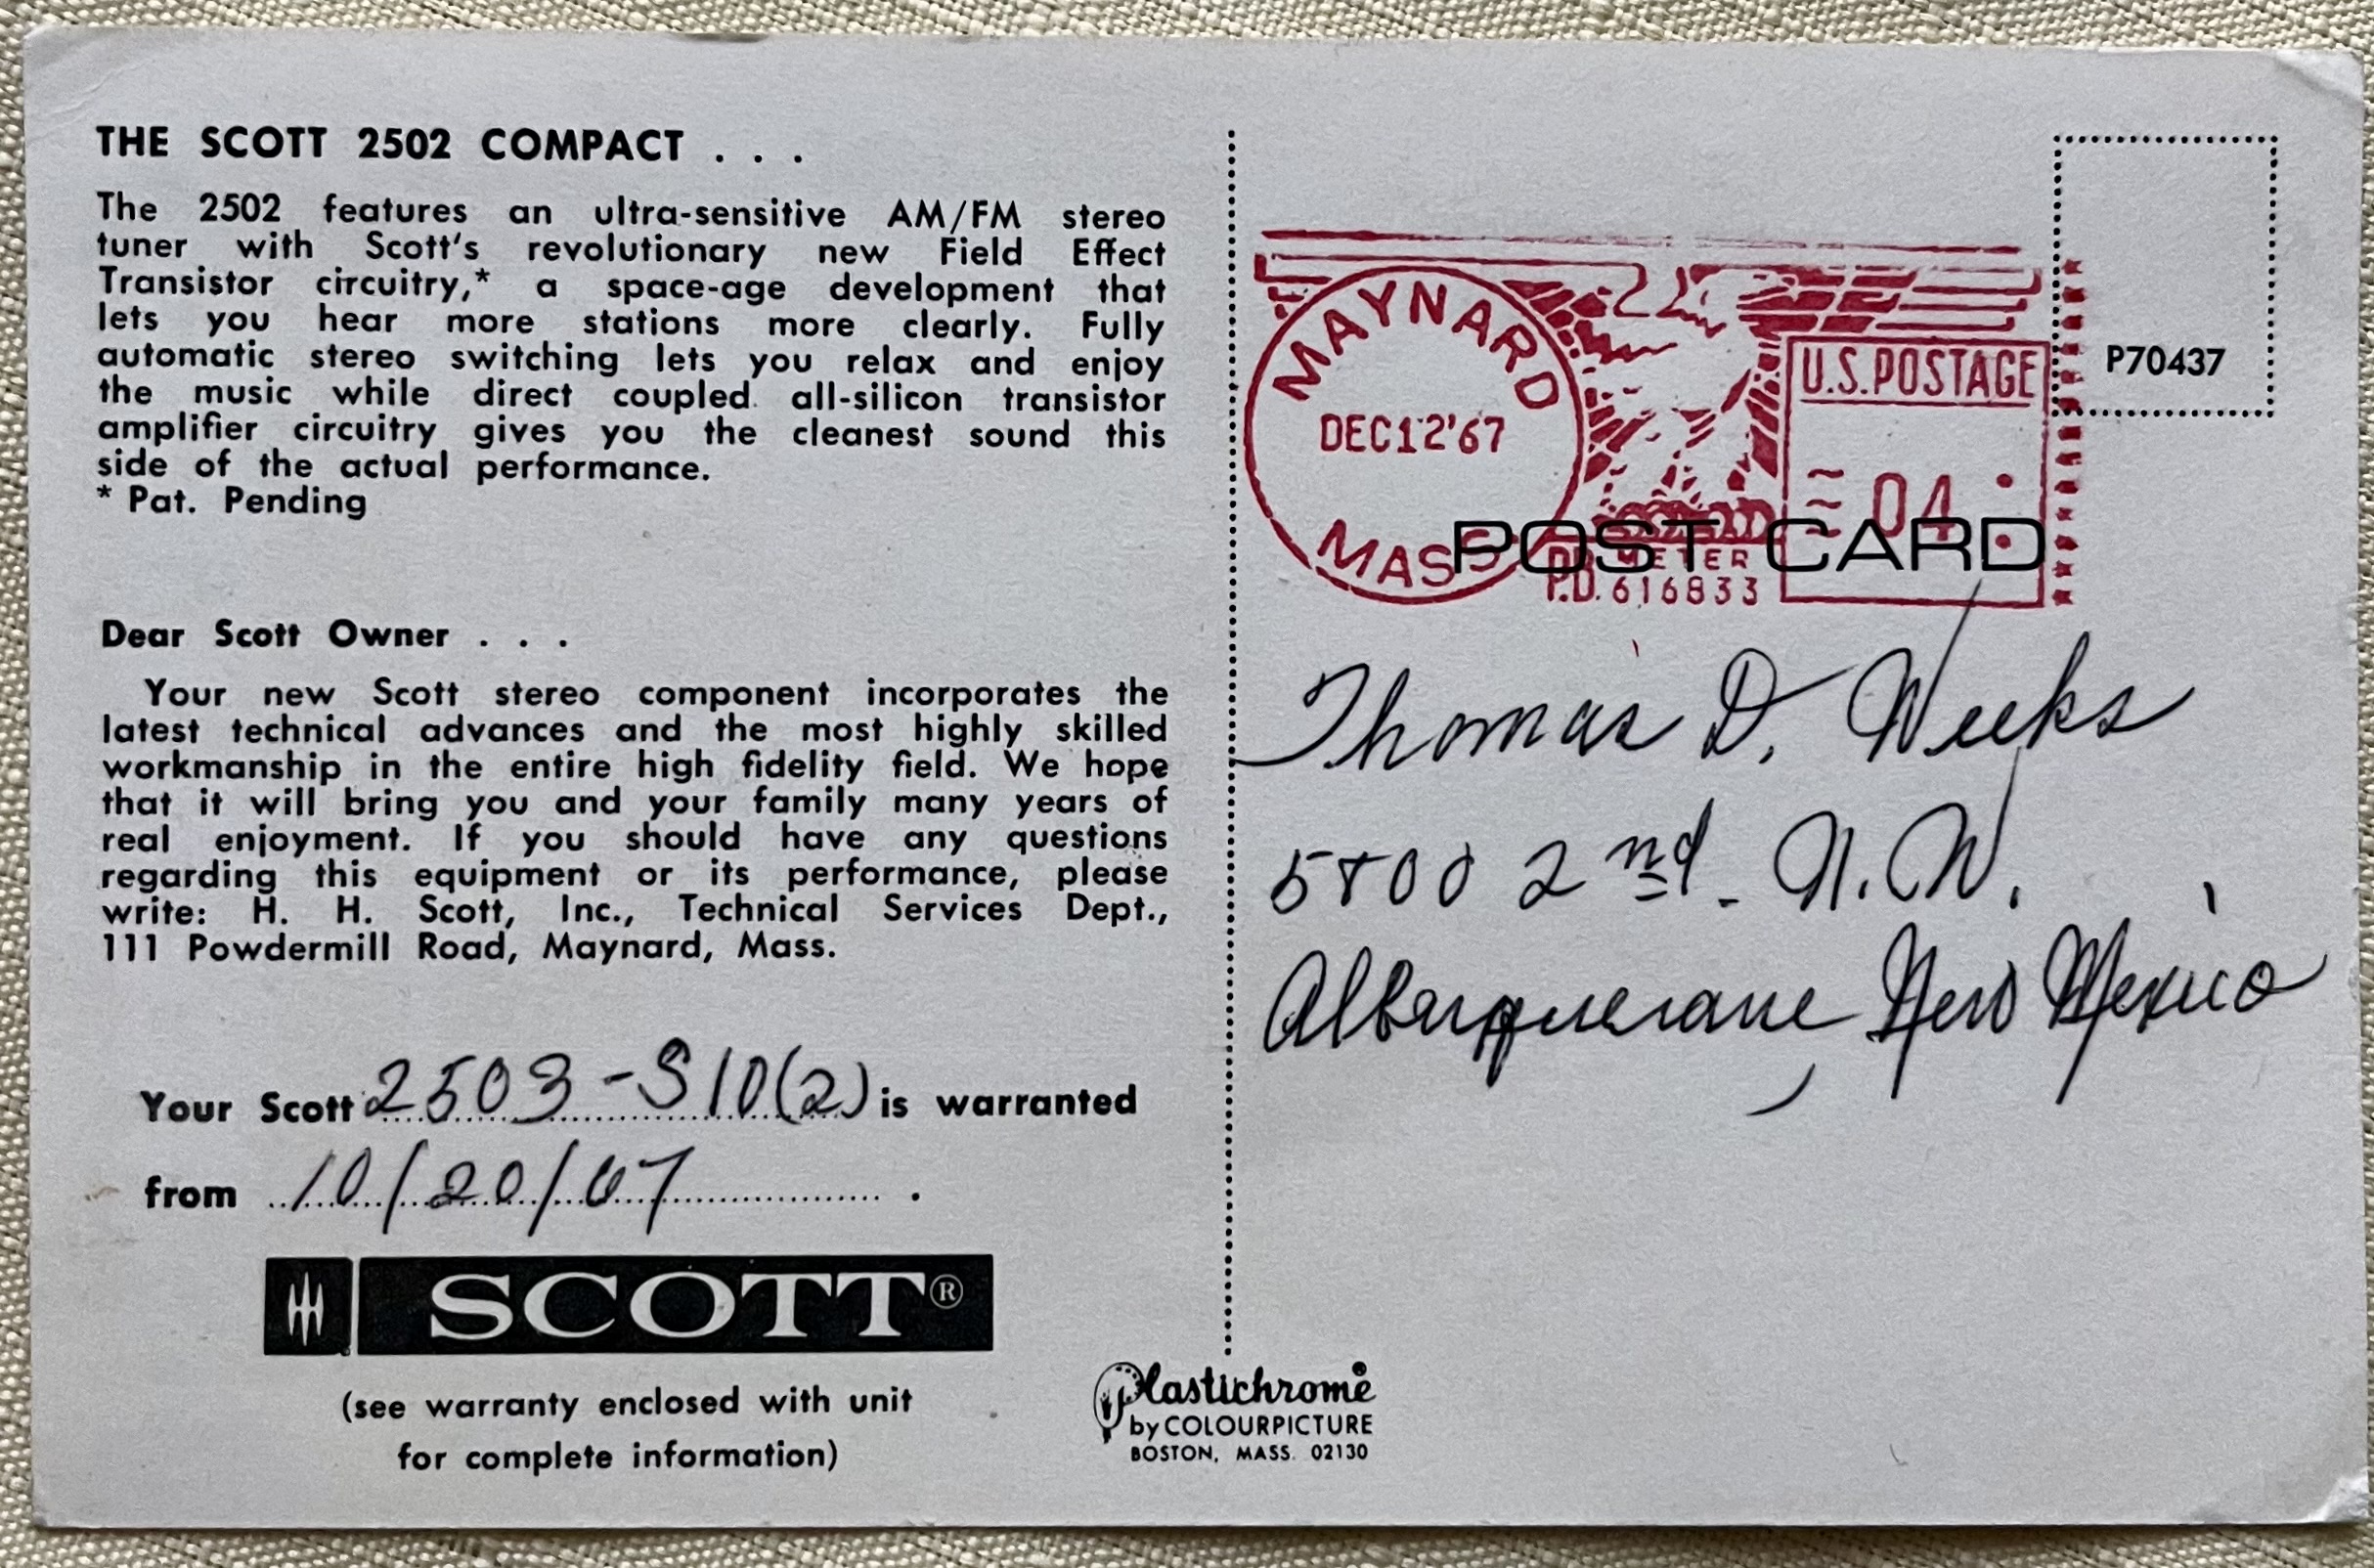 THE SCOTT 2502 COMPACT . . .
The 2502 features an ultra-sensitive AM/FM stereo
tuner with Scott's revolutionary new Field Effect
Transistor circuitry,* a space-age development that
lets you hear more stations more clearly. Fully
automatic stereo switching lets you relax and enjoy
the music while direct coupled all-silicon transistor
amplifier circuitry gives you the cleanest sound this
side of the actual performance.
* Pat. Pending
Dear Scott Owner . . .
Your new Scott stereo component incorporates the
latest technical advances and the most highly skilled
workmanship in the entire high fidelity field. We hope
that it will bring you and your family many years of
real enjoyment. If you should have any questions
regarding this equipment or its performance, please
write: H. H. Scott, Inc., Technical Services Dept.,
111 Powdermill Road, Maynard, Mass.
Your Scott 2503-S10(2) is warranted
from 10/20/67 .
SCOTT®
(see warranty enclosed with unit
for complete information)
Plastichrome®
by COLOURPICTURE
BOSTON, MASS. 02130
MAYNARD
DEC12'67
MASS
U.S. POSTAGE
04
P.B. METER
616833
P70437
POST CARD
Thomas D. Weeks
5800 2nd. N.W.
New Mexico